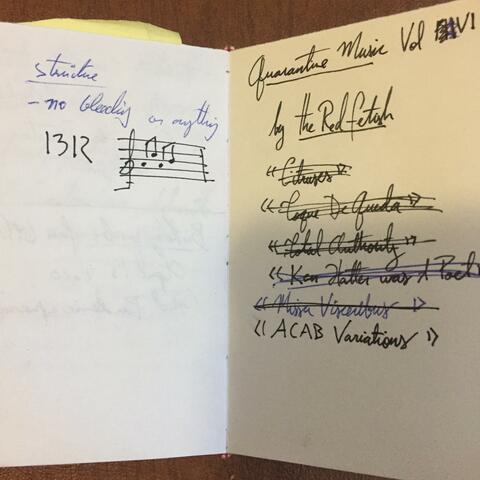 stricture
- no bleeding or anything
1312
Quarantine Music Vol VI
by the Red Fetish
« Citruses »
« Toque De Queda »
« Total Authority »
« Ken Hatter was A Poet
« Missa Visceribus »
« ACAB Variations »